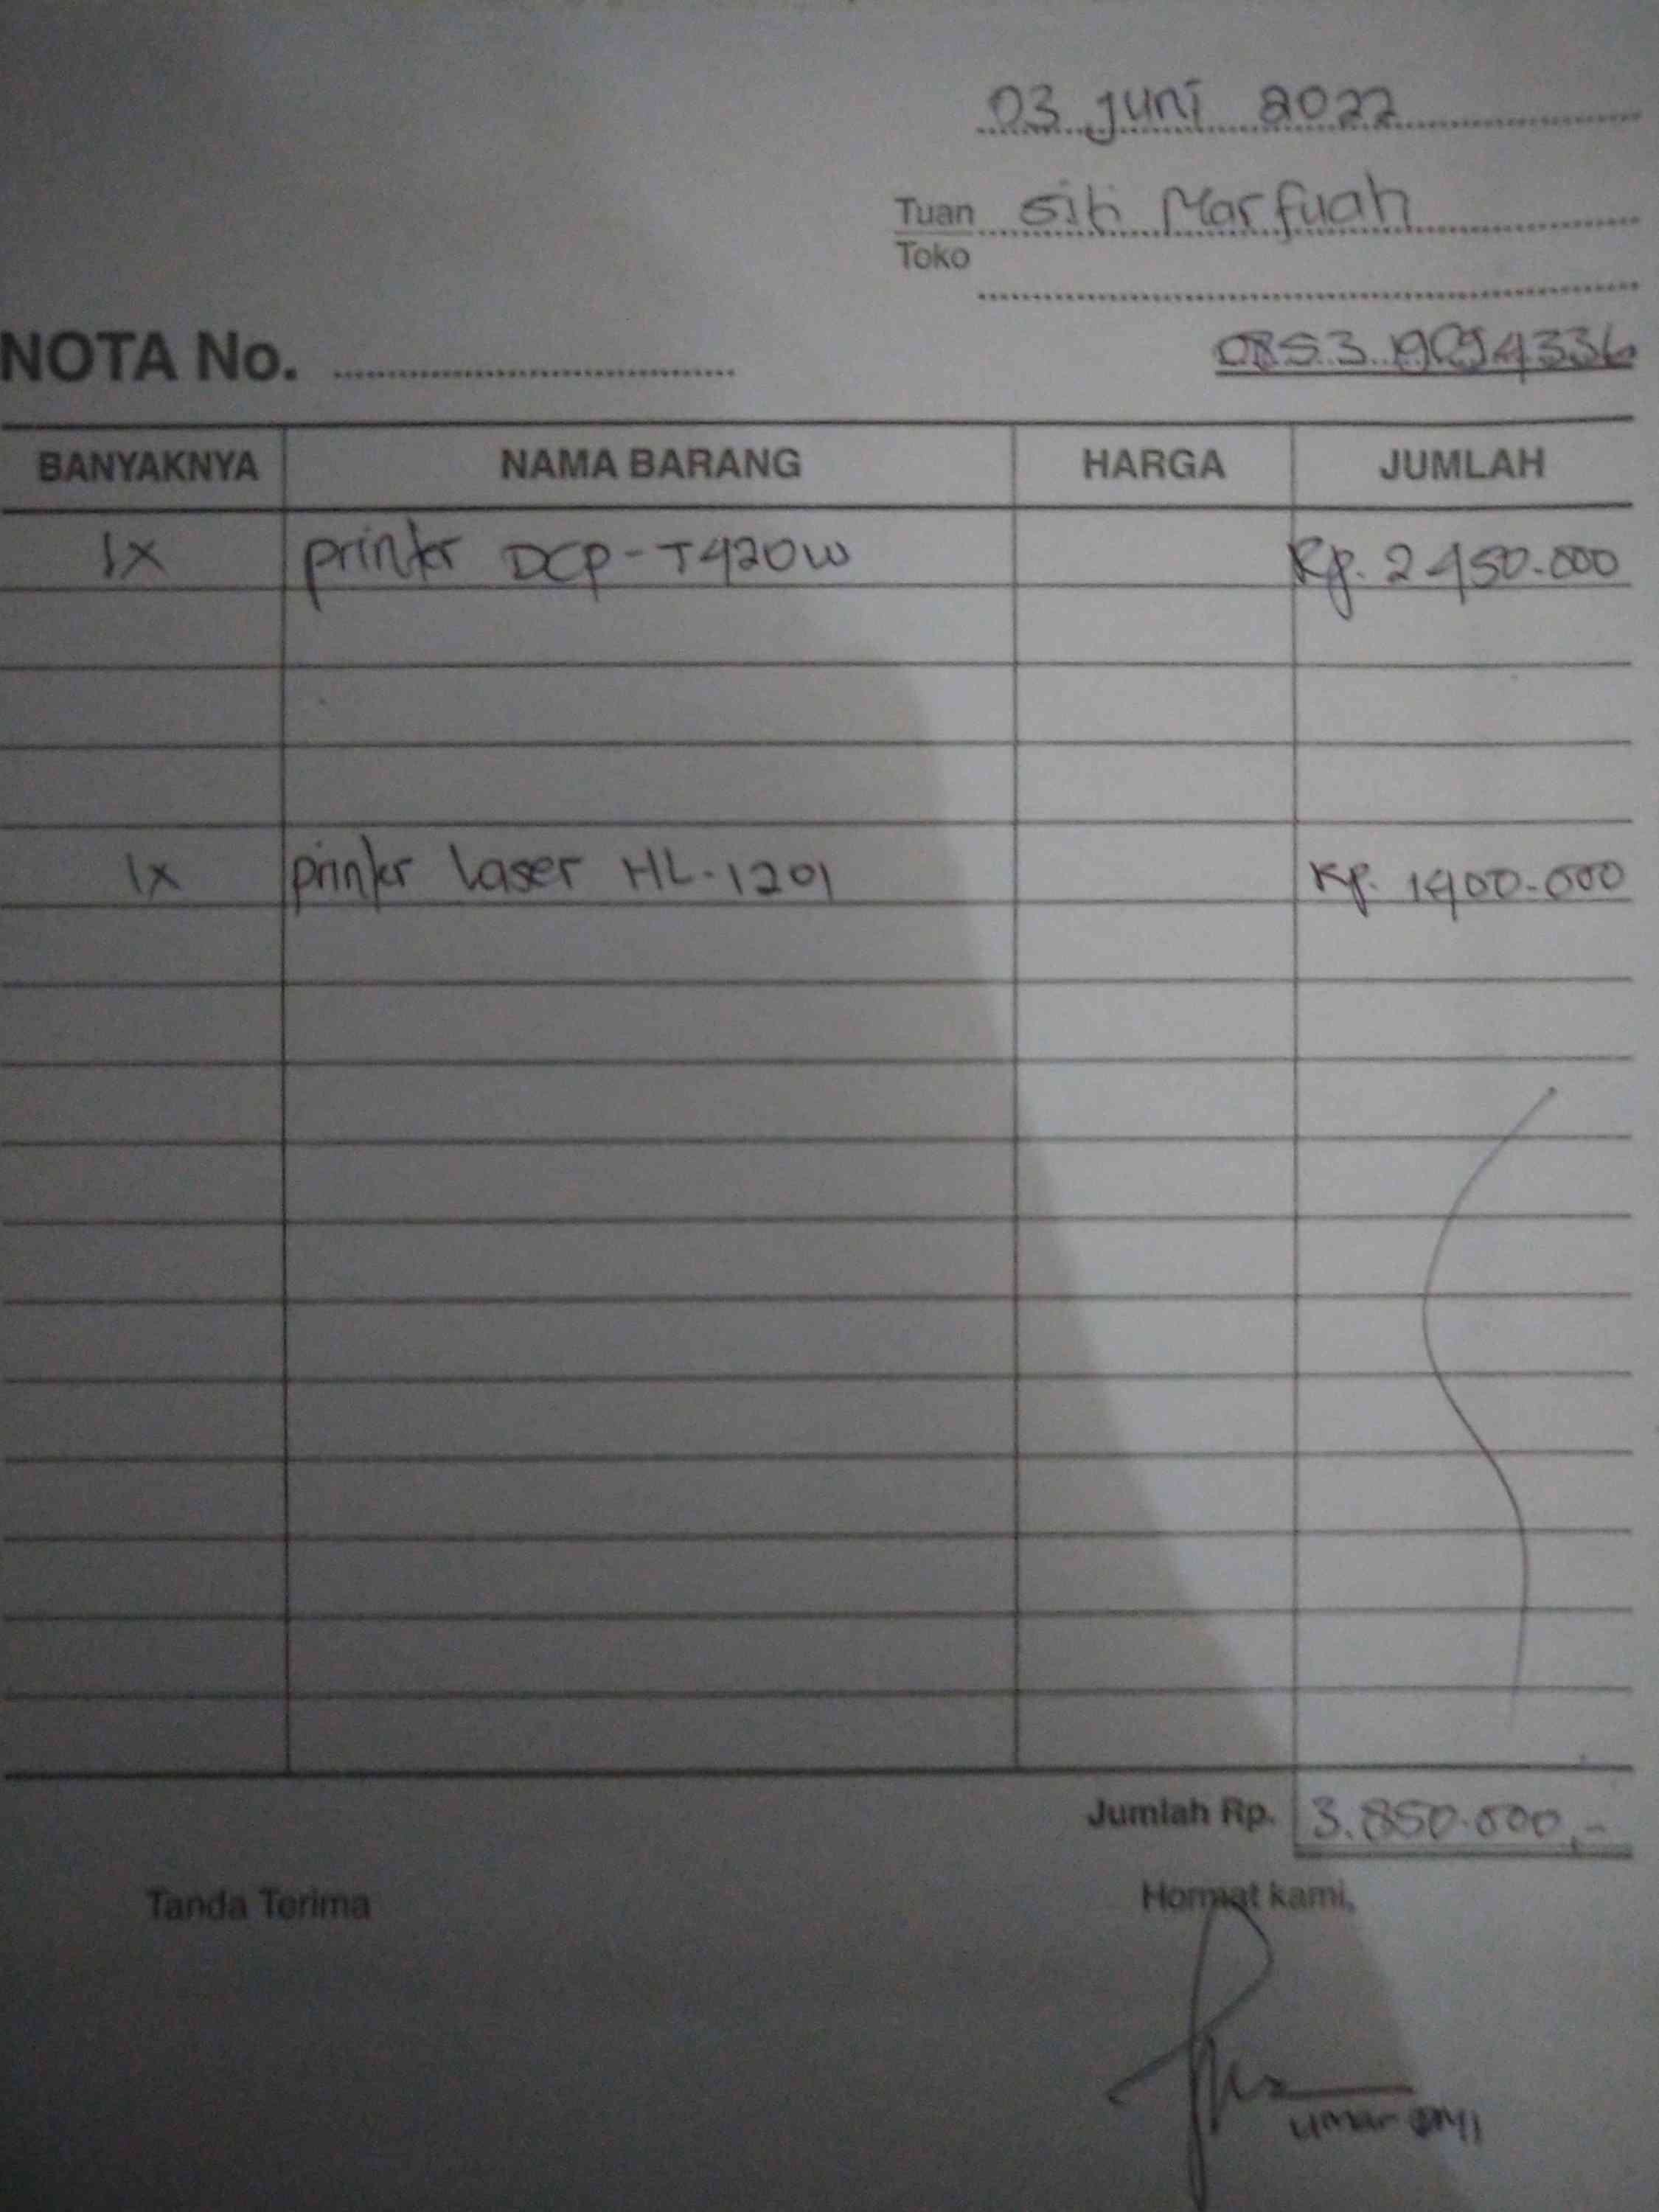 03 Juni 2022
Tuan Siti Marfuah
Toko
NOTA No.
BANYAKNYA NAMA BARANG HARGA JUMLAH
1x printer DCP-T420W Rp. 2450.000
1x printer Laser HL-1201 Rp. 1400.000
Jumlah Rp. 3.850.000,-
Tanda Terima Hormat kami,
umar